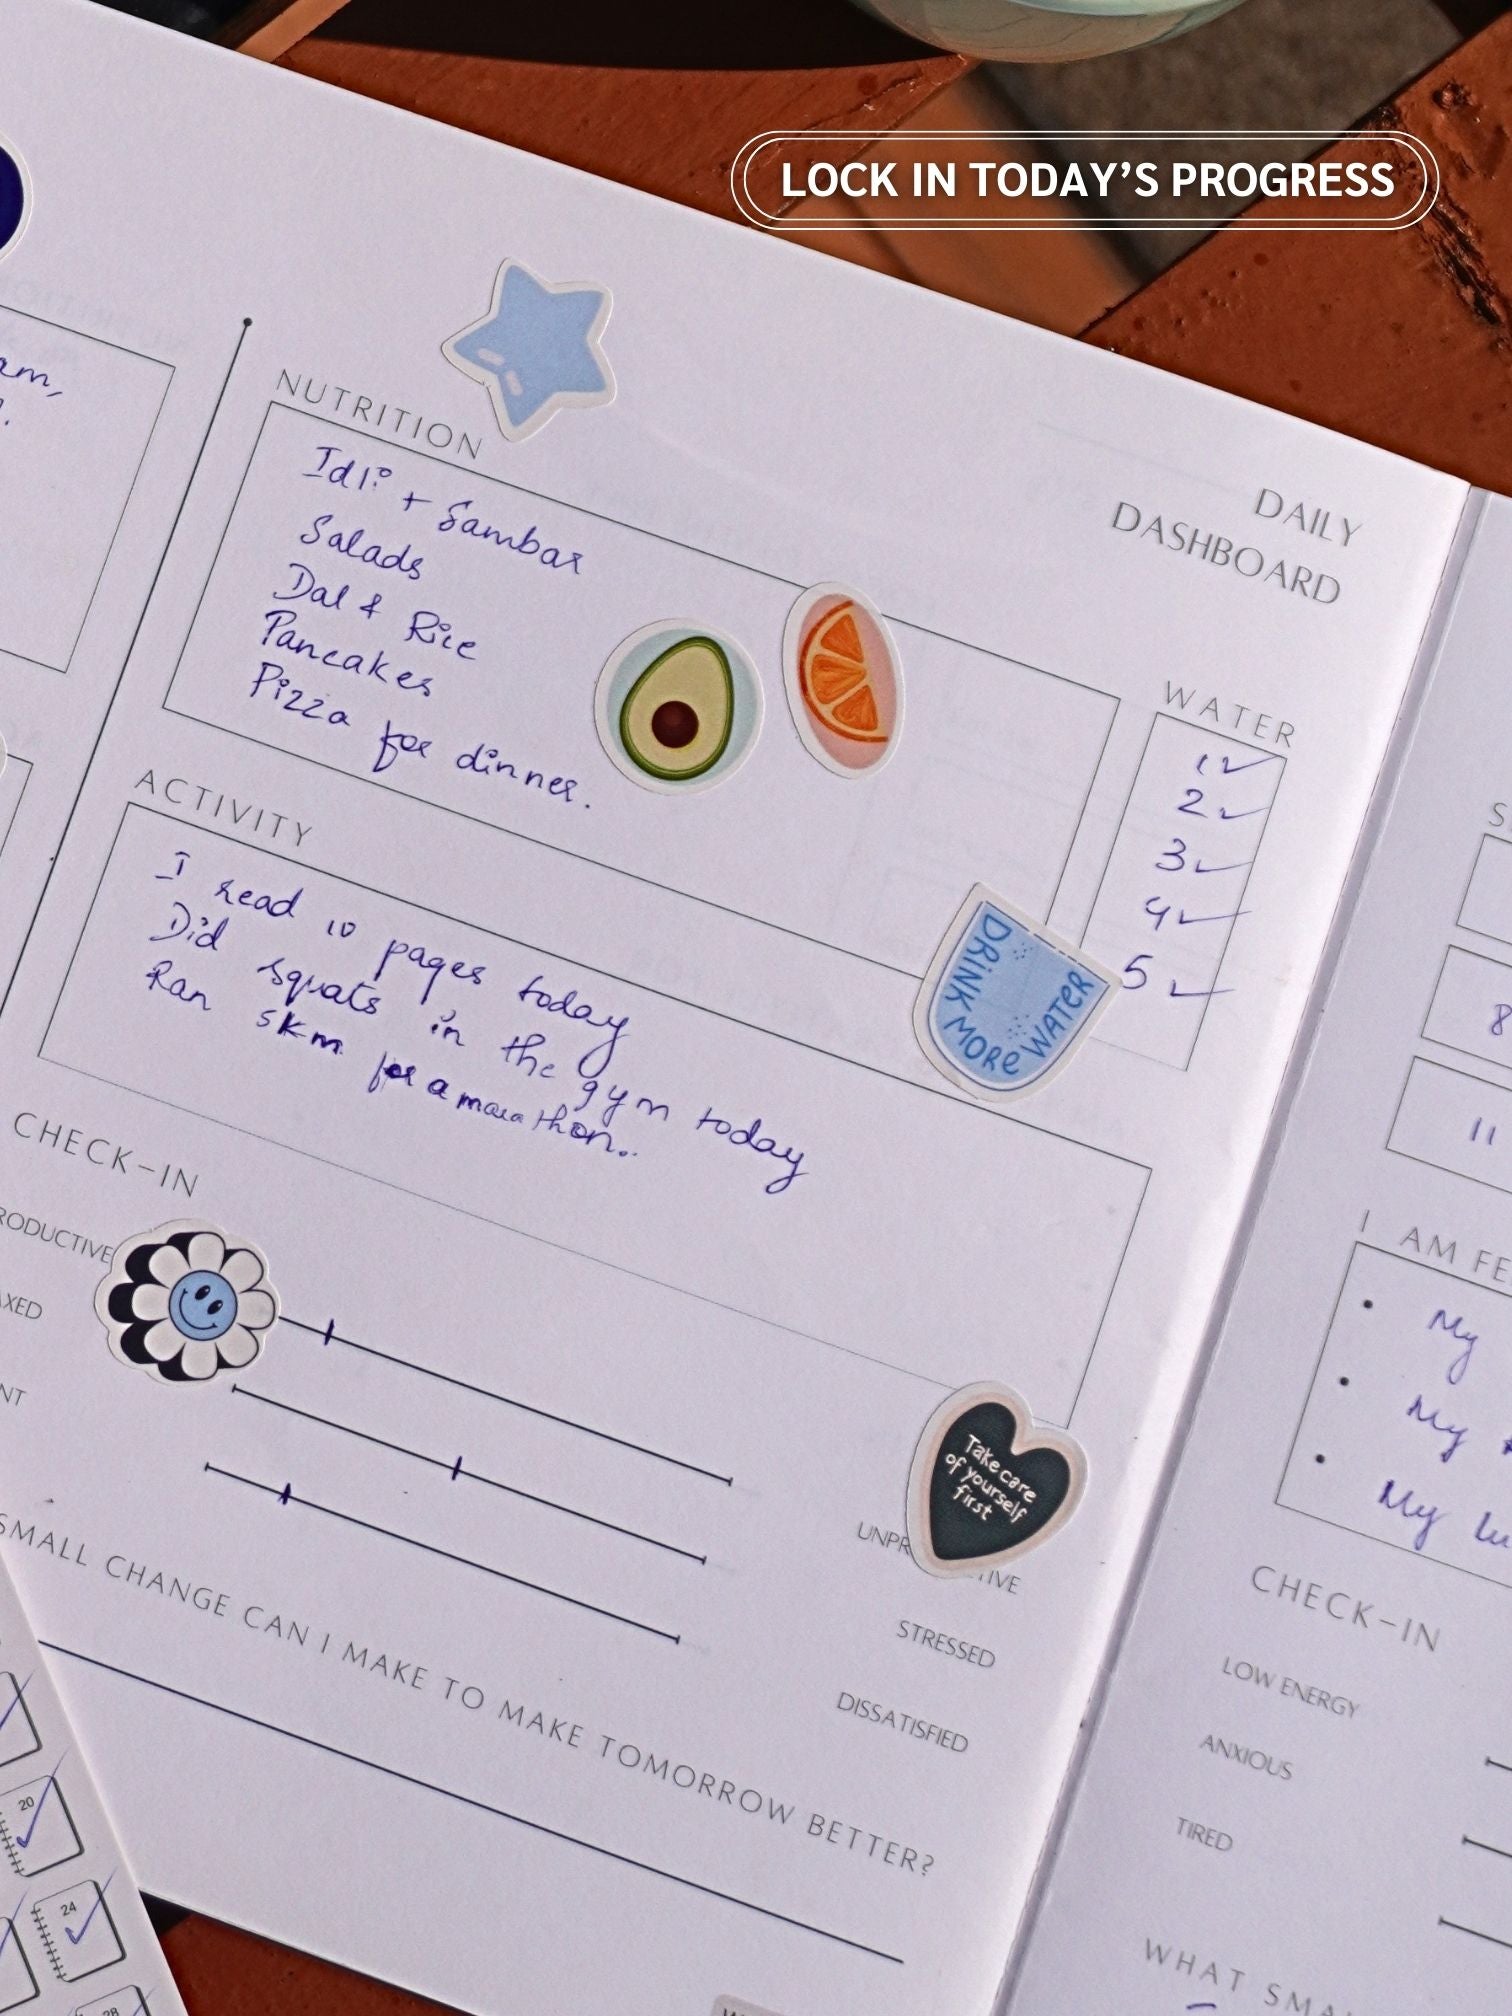 LOCK IN TODAY'S PROGRESS
DAILY
DASHBOARD
am,
NUTRITION
Idli + Sambar
Salads
Dal & Rice
Pancakes
Pizza for dinner.
WATER
1 ✓
2 ✓
3 ✓
4 ✓
5 ✓
DRINK MORE WATER
ACTIVITY
I read 10 pages today
Did squats in the gym today
Ran 5km for a marathon..
CHECK-IN
RODUCTIVE
AXED
NT
Take care
of yourself
first
STRESSED
DISSATISFIED
SMALL CHANGE CAN I MAKE TO MAKE TOMORROW BETTER?
20
24
28
S
8
11
I AM FE
• My
• My
• My lu
CHECK-IN
LOW ENERGY
ANXIOUS
TIRED
WHAT SMA